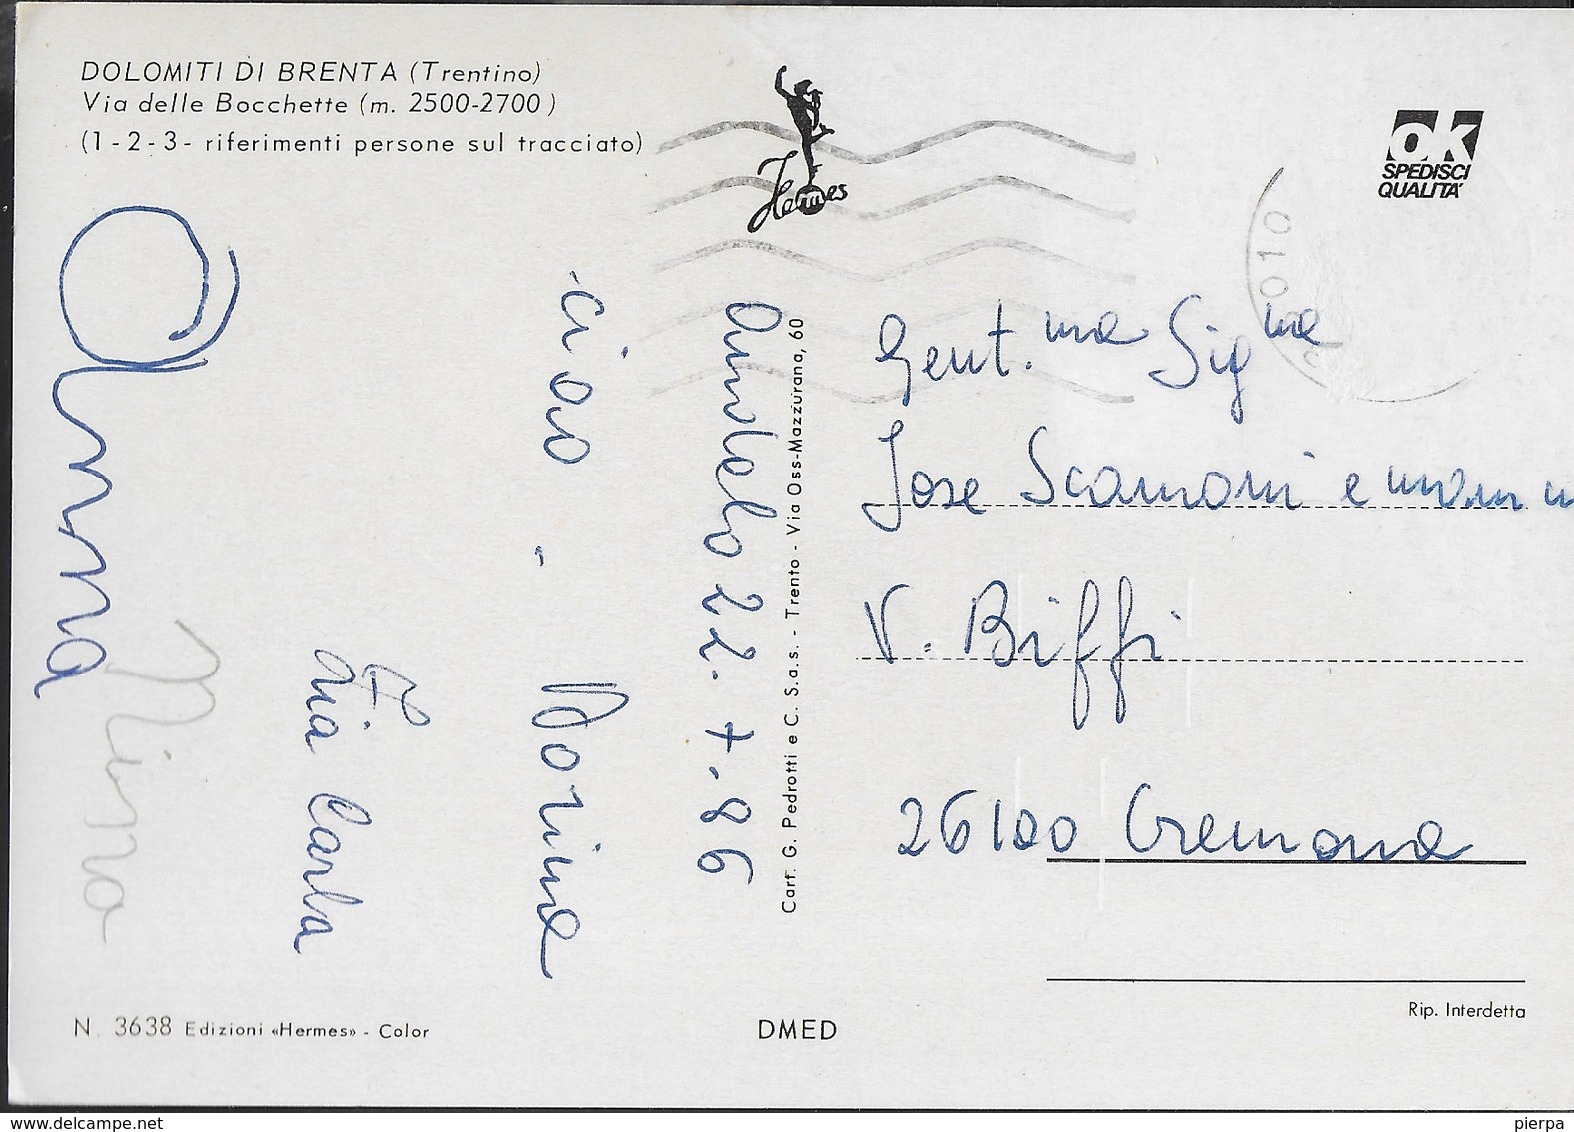 DOLOMITI DI BRENTA (Trentino)
Via delle Bocchette (m. 2500-2700)
(1-2-3- riferimenti persone sul tracciato)
Hermes
OK
SPEDISCI
QUALITA'
010
Andelo 22.7.86
ciao - Dorina
Zia Carla
Anna
Mirna
Cart. G. Pedrotti e C. S.a.s. - Trento - Via Oss-Mazzurana, 60
Gent.ma Sigma
Jose Scamoni e mamma
V. Biffi
26100 Cremona
Rip. Interdetta
N. 3638 Edizioni «Hermes» - Color
DMED
delcampe.net
pierpa